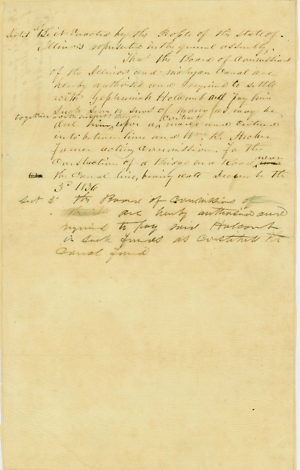 Sect 1 Be it Enacted by the People of the State of
Illinois represented in the general assembly
That the Board of Commissioners
of the Illinois and Michigan Canal are
hereby authorised and required to settle
with Zephaniah Holcomb and pay him
such Sum or Sums of money as may be
due him, upon a contract entered
into between him and Wm
former acting Commissioner for the
Construction of a Bridge on a Road near
the Canal line, bearing date December the
3d 1836
Sect 2d The Board of Commissioners of
are hereby authorised and
required to pay said Holcomb
in such funds as constitute the
Canal fund